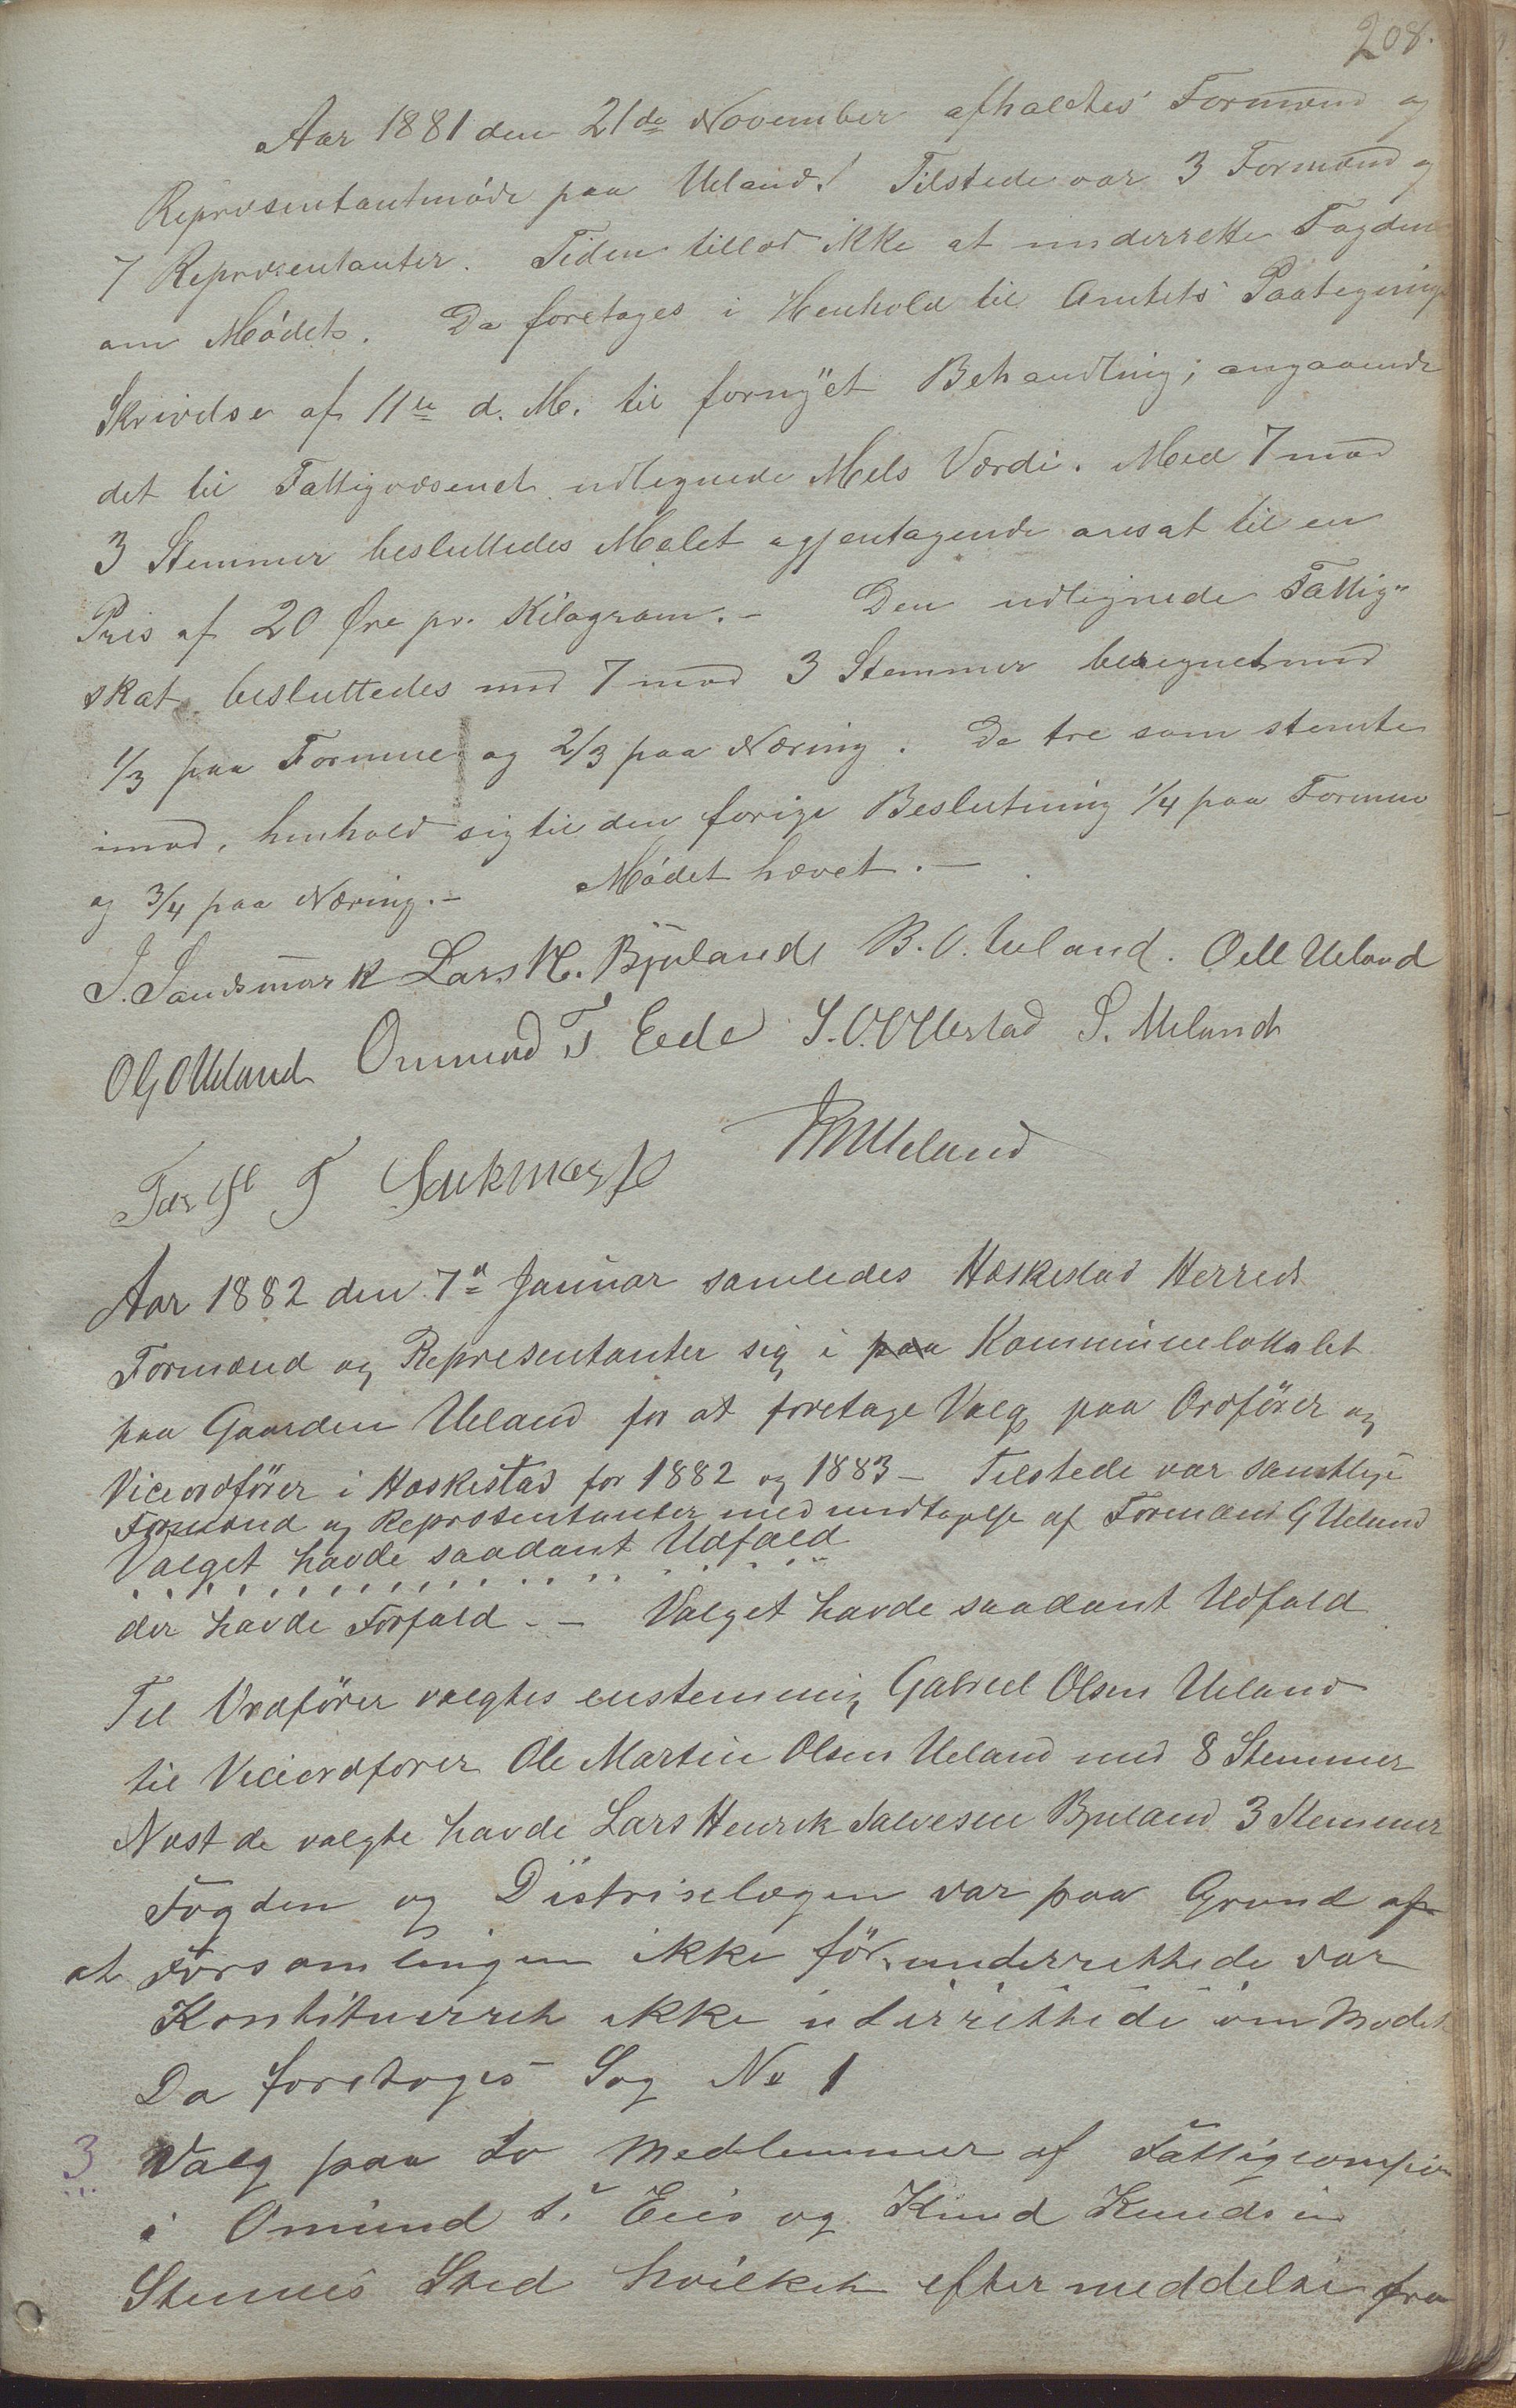 208.
Aar 1881 den 21de November afholdtes Formænd og
Repræsentantmøde paa Ueland. Tilstede var 3 Formænd og
7 Repræsentanter. Tiden tillod ikke at underrette Fogden
om Mødet. Da foretages i Henhold til Amtets Paategnings
Skrivelse af 11te d. M. til fornyet Behandling; angaaende
det til Fattigvæsenet udlignede Mels Værdi. Med 7 mod
3 Stemmer besluttedes Melet agjentagende ansat til en
Pris af 20 Øre pr. Kilogram. - Den udlignede Fattig"
skat besluttedes med 7 mod 3 Stemmer beregnet med
1/3 paa Formue og 2/3 paa Næring. De tre som stemte
imod, henhold sig til den forige Beslutning 1/4 paa Formue
og 3/4 paa Næring. - Mødet hævet. -
J. Sandsmark Lars H. Bjuland B. O. Ueland. Oell Ueland
O G O Ueland Ommund T Eede S. O. Ollestad S. Ueland
T Sukmark OMUeland
Aar 1882 den 7d Januar samledes Hæskestad Herreds
Formænd og Representanter sig i paa Kommunelokalet
paa Gaarden Ueland for at foretage Valg paa Ordfører og
Viceordfører i Hæskestad for 1882 og 1883 - Tilstede var samtlige
Formænd og Repræsentanter med undtagelse af Formænd G Ueland
Valget havde saadant Udfald
der havde Forfald. - Valget havde saadant Udfald
Til Ordfører valgtes enstemmig Gabriel Olsen Ueland
til Viceordfører Ole Martin Olsen Ueland med 8 Stemmer
Næst de valgte havde Lars Henrik Salvesen Bjuland 3 Stemmer
Fogden og Distrikslægen var paa Grund af
at Forsamlingen ikke før underrettede var
Kontituerret ikke uderrettede om Mødet
Da foretoges Sag No 1
3 Valg paa to Medlemmer af Fattigcompion
i Omund T. Eies og Knud Knudsen
Steunes Sted hvilket efter meddelse fra